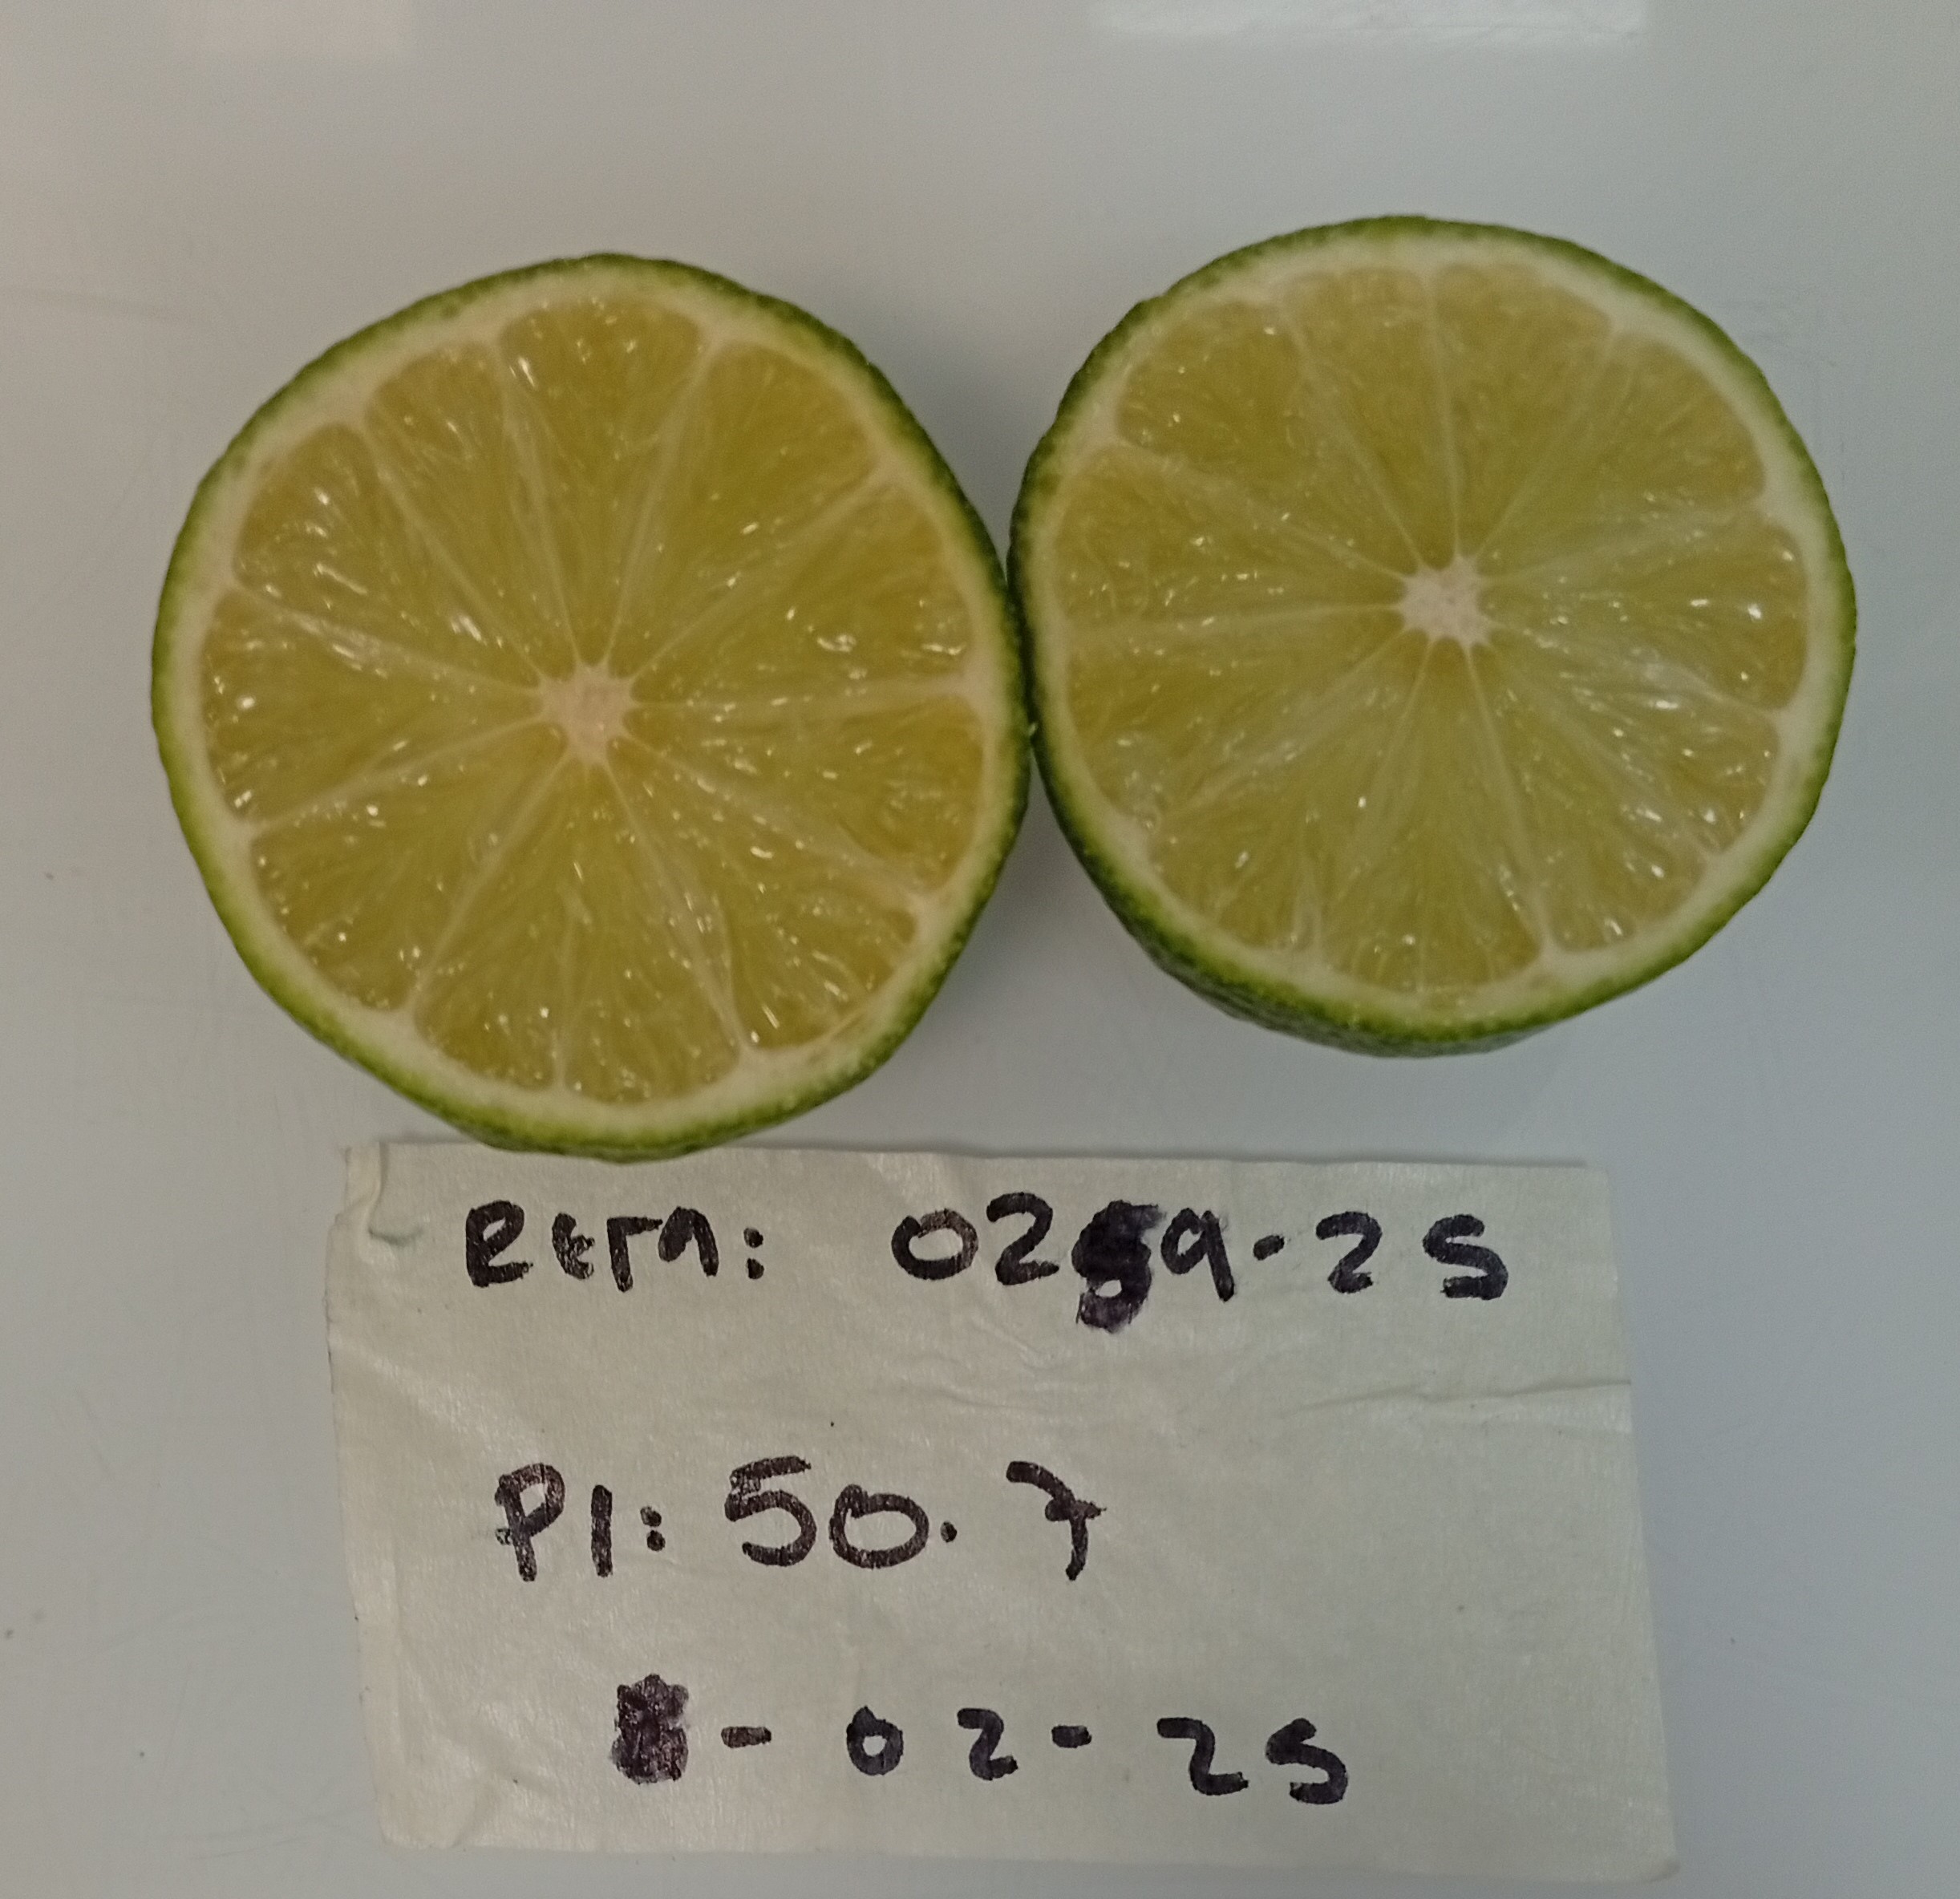 RETA: 0259-25
P1: 50.7
8-02-25